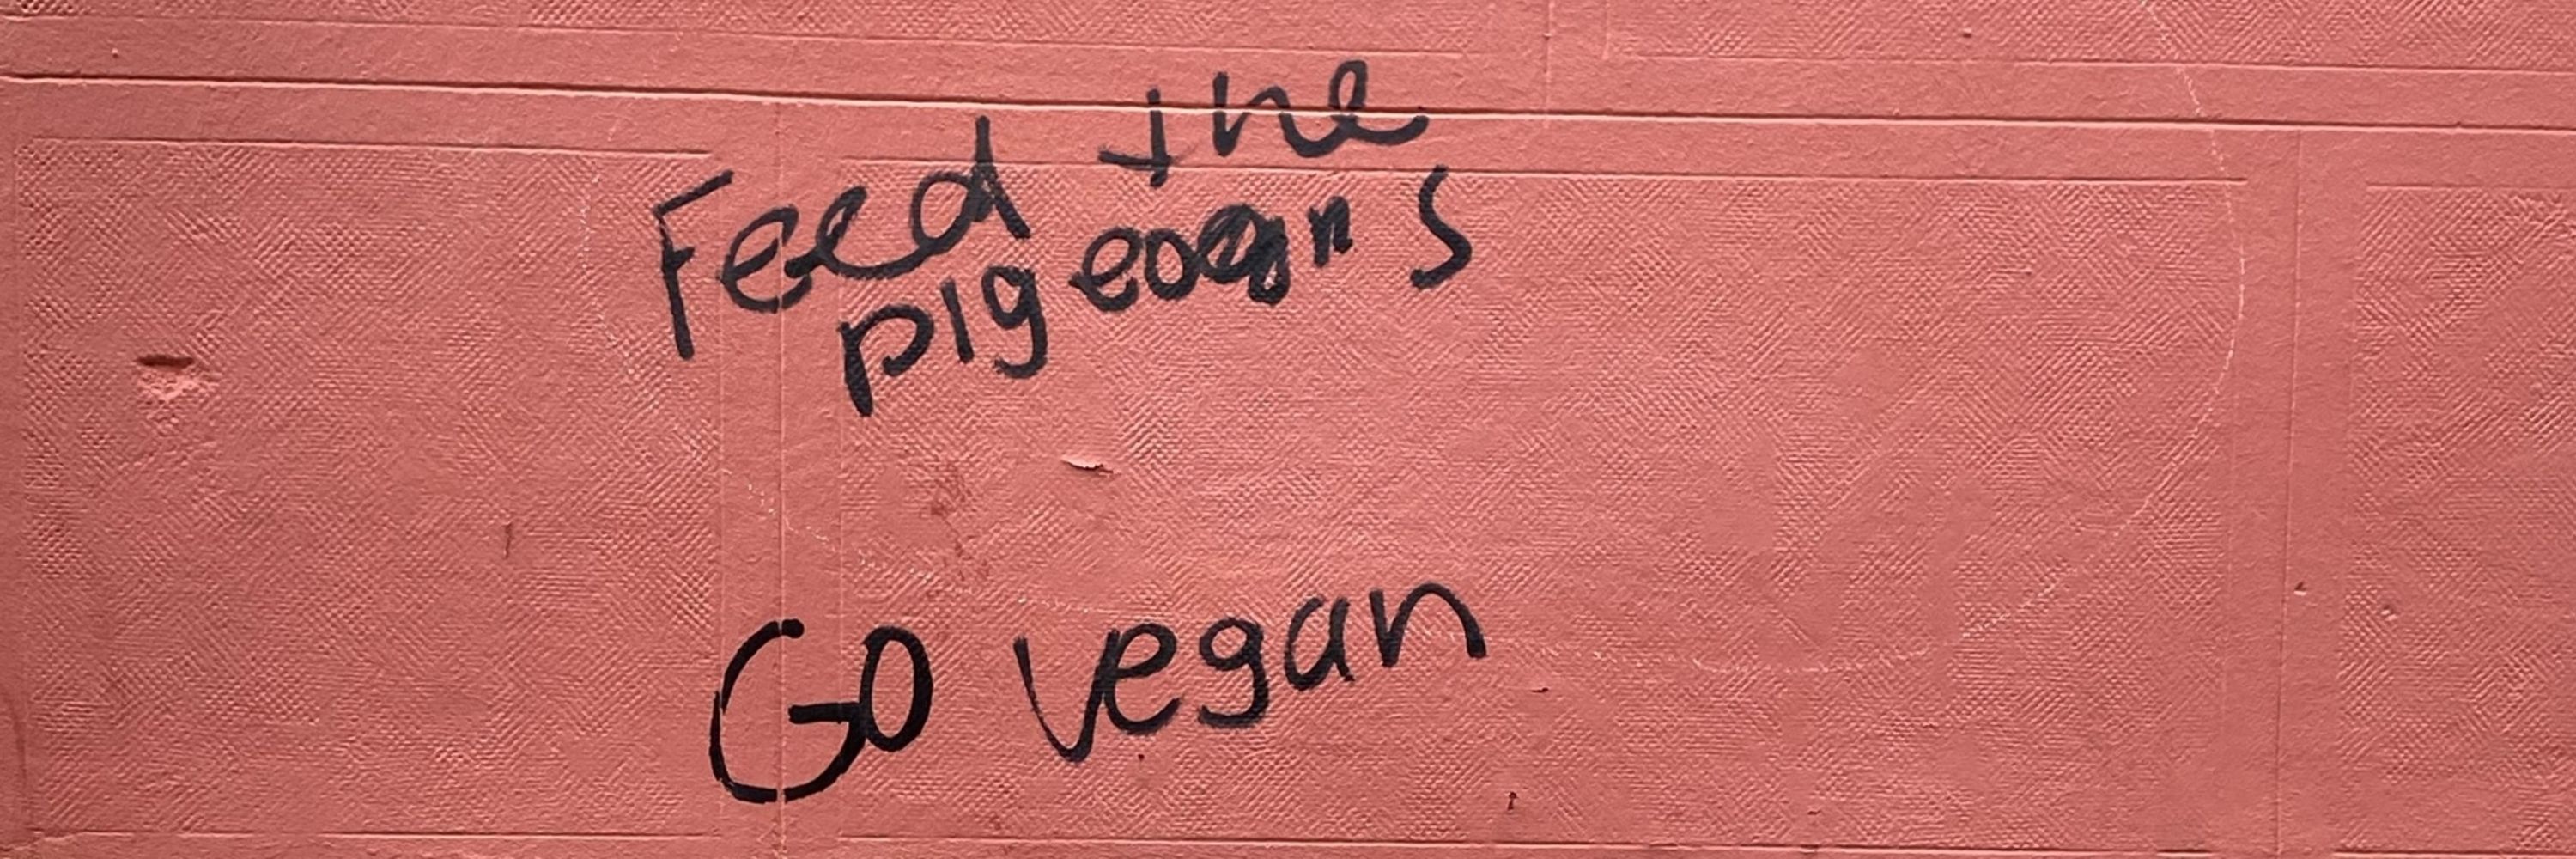 Feed the
pigeons
Go vegan